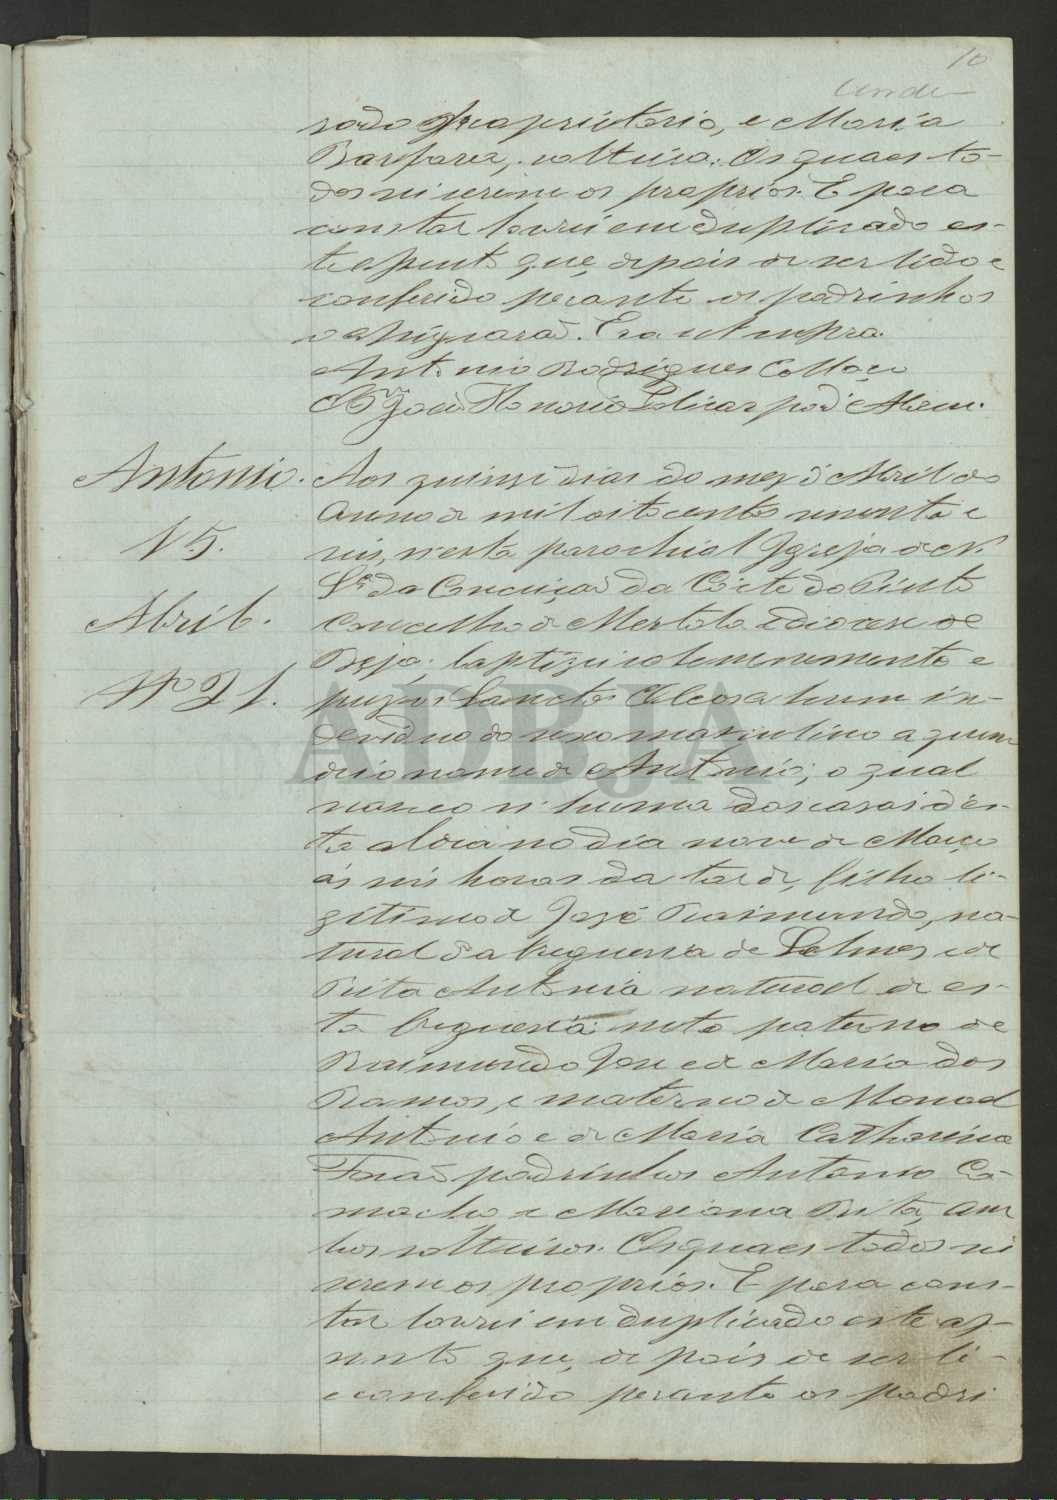 10
sado proprietario, e Maria
Barbara, solteira. Os quaes to-
dos sei serem os proprios. E para
constar lavrei em duplicado es-
te assento que, depois de ser lido e
conferido perante os padrinhos
o assignarão. Era ut supra.
Antonio Rodrigues Collaço
João Honorio
Antonio.
15.
Abril.
Nº 21.
Aos quinze dias do mez d'Abril do
Anno de mil oitocentos noventa e
seis, n'esta parochial Igreja de N.
Srª da Conceição da Corte do Pinto
Concelho de Mertola e diocese de
Beja, baptizei solemnemente e
puz os Sanctos Oleos a hum in-
deviduo do sexo masculino a quem
dei o nome de Antonio; o qual
nasceo n'huma das casas d'es-
ta aldeia no dia nove de Março
ás seis horas da tarde, filho le-
gitimo de José Raimundo, na-
tural da freguesia de e de
Rita Antonia natural de es-
ta freguesia: neto paterno de
Raimundo José e de Maria dos
Ramos, e materno de Manoel
Antonio e de Maria Catharina
Forão padrinhos Antonio Ca-
macho, e Mariana Rita, am
bos solteiros. Os quaes todos sei
serem os proprios. E para cons-
tar lavrei em duplicado este as-
sento que, depois de ser li-
e conferido perante os padri
ADBJA